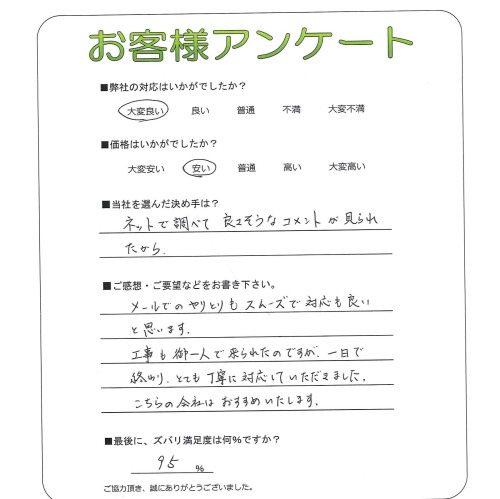 お客様アンケート
■弊社の対応はいかがでしたか？
大変良い 良い 普通 不満 大変不満
■価格はいかがでしたか？
大変安い 安い 普通 高い 大変高い
■当社を選んだ決め手は？
ネットで調べて 良さそうなコメントが見られ
たから。
■ご感想・ご要望などをお書き下さい。
メールでのやりとりもスムーズで対応も良い
と思います。
工事も御一人で来られたのですが、一日で
終わり、とても丁寧に対応していただきました。
こちらの会社はおすすめいたします。
■最後に、ズバリ満足度は何%ですか？
95 %
ご協力頂き、誠にありがとうございました。